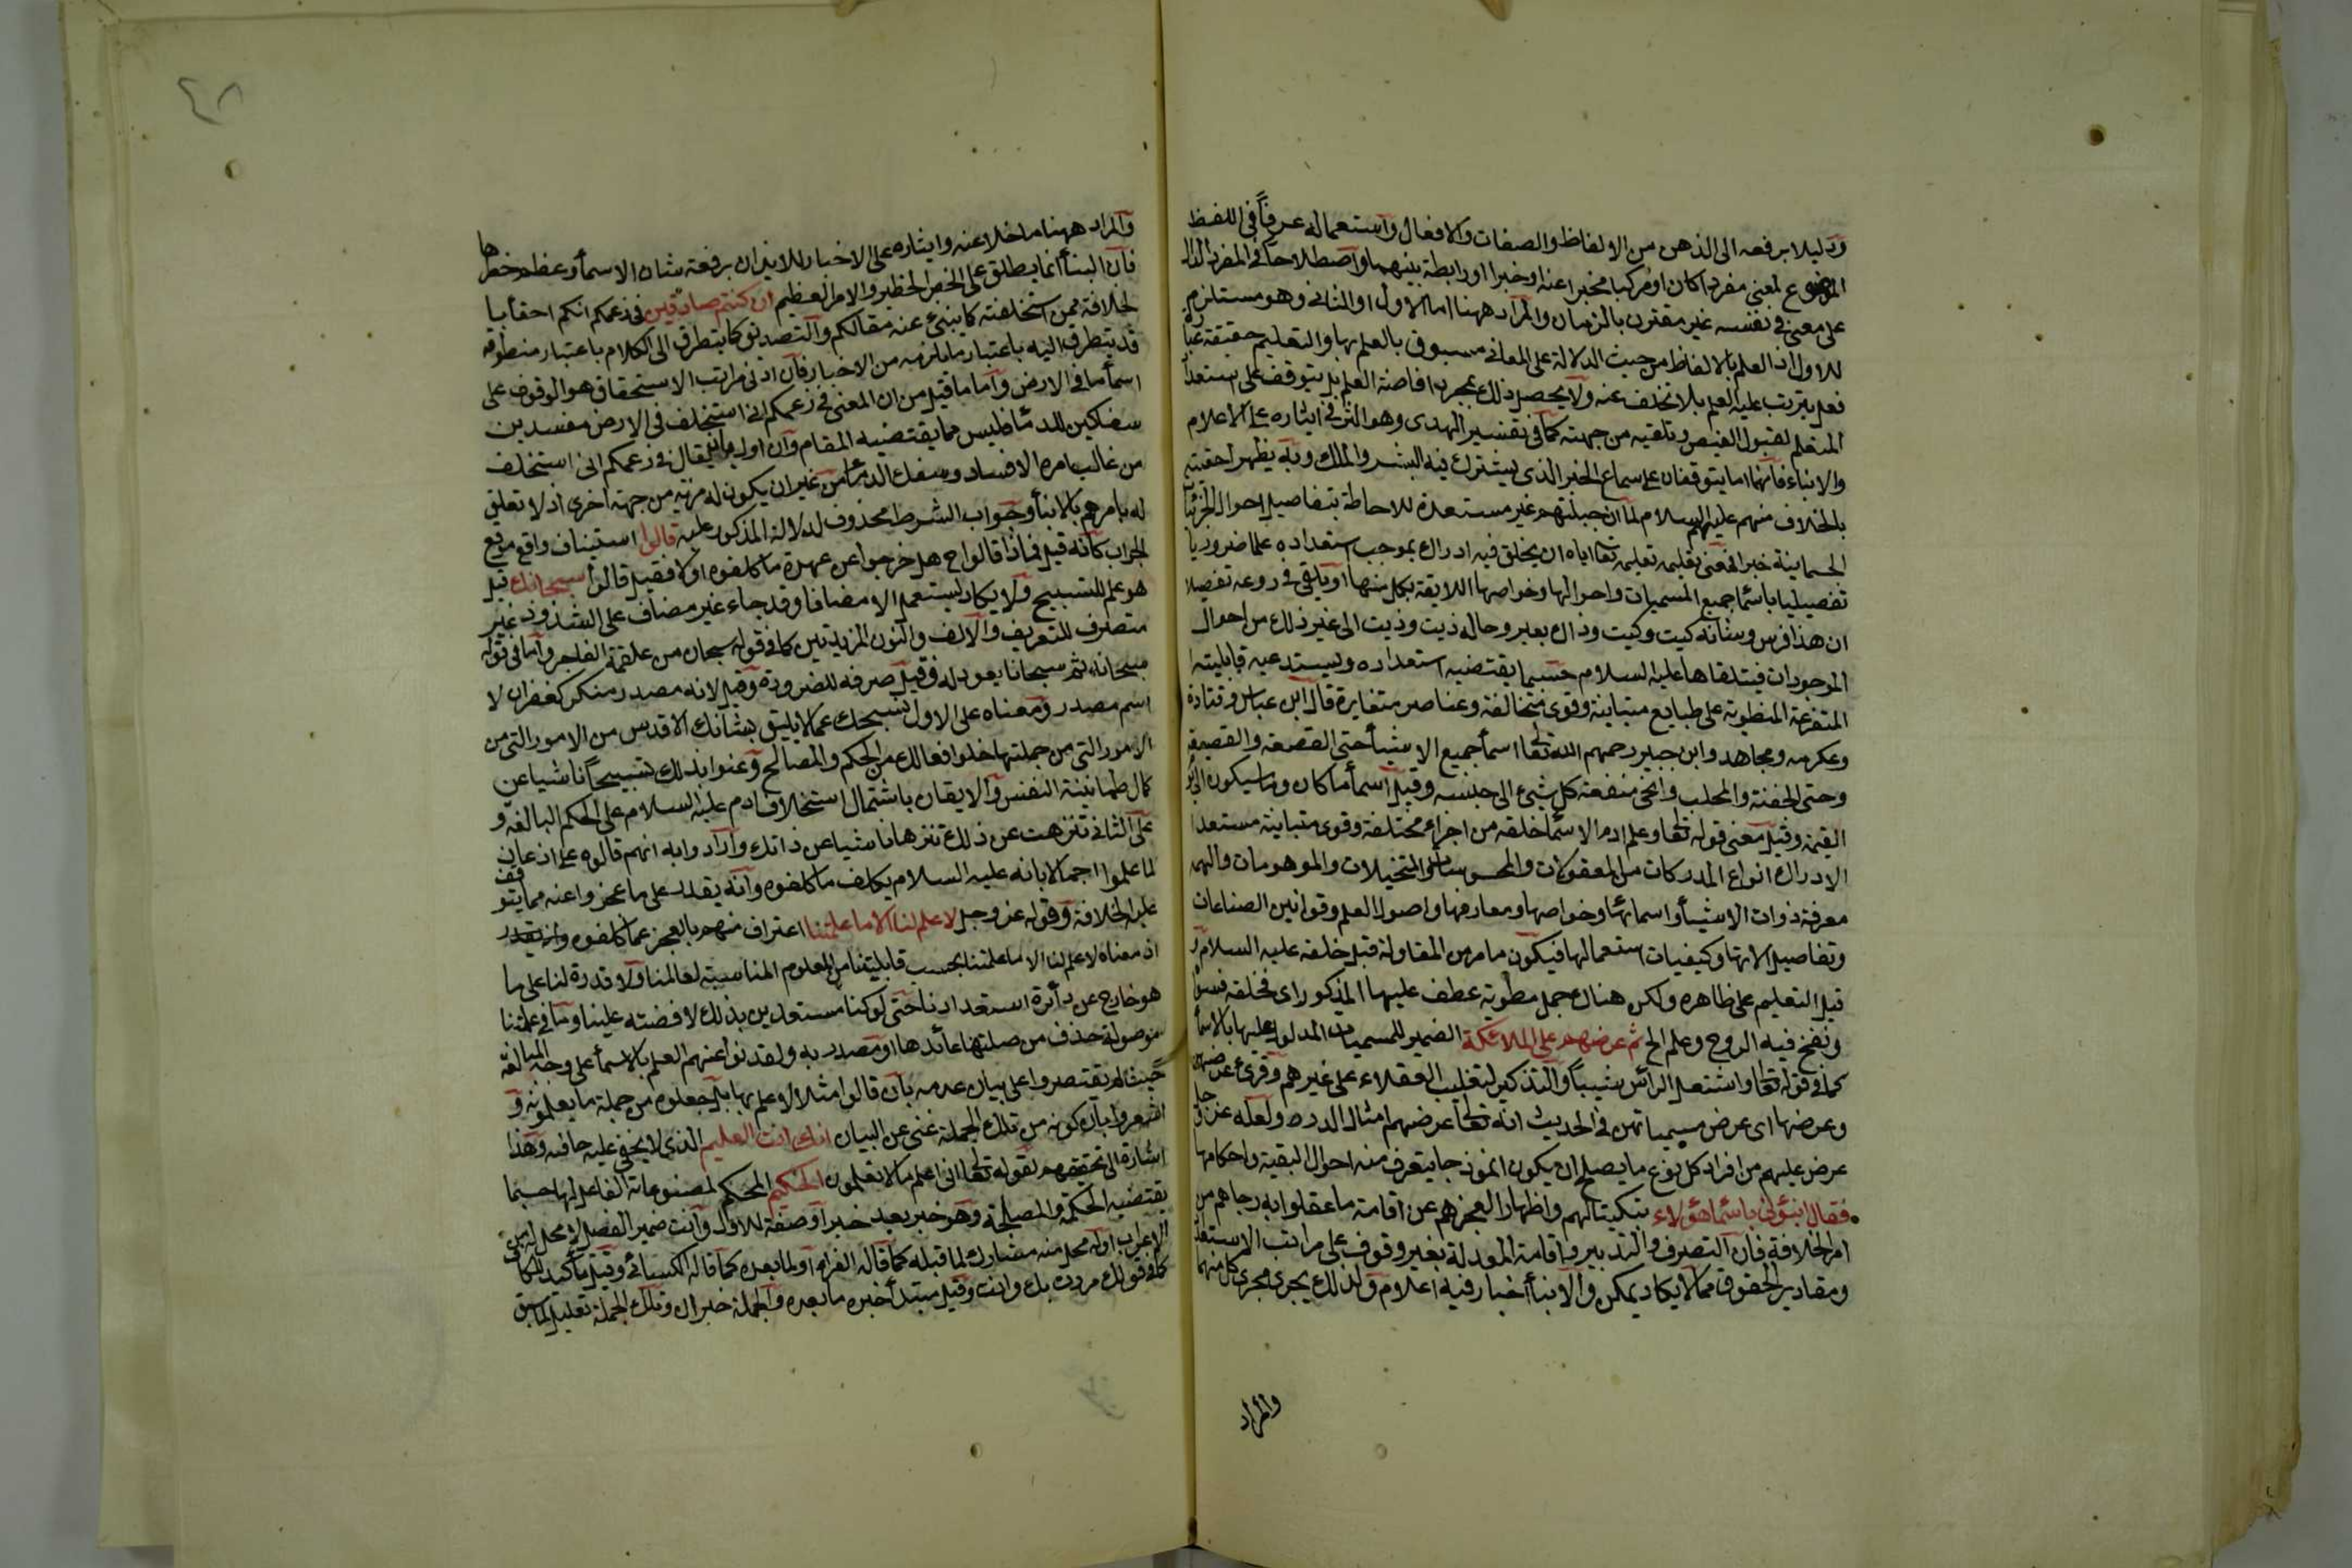 ودليلا يرفعه الى الذهن من الالفاظ والصفات والافعال واستعماله عرفاً فى اللفظ
الموضوع لمعنى مفردا كان او مركبا مخبرا عنه او خبرا او رابطة بينهما واصطلاحا فى المفرد الدال
على معنى فى نفسه غير مقترن بالزمان والمراد ههنا اما الاول او الثانى وهو مستلزم
للاول اذ العلم بالالفاظ من حيث الدلالة على المعانى مسبوق بالعلم بها والتعليم حقيقة عبارة
فعل يترتب عليه العلم بلا تخلف عنه ولا يحصل ذلك بمجرد افاضة العلم بل يتوقف على استعداد
المتعلم لقبول الفيض وتلقيه من جهته كما فى تفسير الهدى وهو السر فى ايثاره على الاعلام
والانباء فانهما انما يتوقفان على سماع الخبر الذى يشترك فيه البشر والملك وبه يظهر احقيته
بالخلافة منهم عليهم السلام لما ان جبلتهم غير مستعدة للاحاطة بتفاصيل احوال الجزئيات
الجسمانية خبرا فمعنى تعليمه تعالى اياه ان يخلق فيه ادراك بموجب استعداده علما ضروريا
تفصيليا باسماء جميع المسميات واحوالها وخواصها اللائقة بكل منها او يلقى فى روعه تفصيلا
ان هذا فرس وشانه كيت وكيت وذاك بعير وحاله ذيت وذيت الى غير ذلك من احوال
الموجودات فيتلقاها عليه السلام حسبما يقتضيه استعداده ويستدعيه قابليته
المتفرعة المنطوية على طبايع متباينة وقوى متخالفة وعناصر متغايرة قال ابن عباس وقتادة
وعكرمه ومجاهد وابن جبير رحمهم الله تعالى اسمأ جميع الاشيأ حتى القصعة والقصيعة
وحتى الجفنة والمحلب وانحى منفعة كل شئ الى جنسه وقيل اسمأ ما كان وما سيكون الى يوم
القيمة وقيل معنى قوله تعالى وعلم ادم الاسمأ خلقه من اجزاء مختلفة وقوى متباينة مستعدا
الادراك انواع المدركات من المعقولات والمحسوسات والمتخيلات والموهومات والهمه
معرفة ذوات الاشيأ واسمائها وخواصها ومعارفها واصول العلم وقوانين الصناعات
وتفاصيل الاتها وكيفيات استعمالها فيكون ما مر من المقاولة قبل خلقه عليه السلام
قيل التعليم على ظاهره ولكن هناك جمل مطوية عطف عليها المذكور اى فخلقه فسواه
ونفخ فيه الروح وعلم الخ ثم عرضهم على الملائكة الضمير للمسميات المدلول عليها بالاسمأ
كما فى قوله تعالى واشتعل الرأس شيباً والتذكير لتغليب العقلاء على غيرهم وقرئ عرضهن
وعرضها اى عرض مسمياتهن فى الحديث انه تعالى عرضهم امثال الذر ولعله عز وجل
عرض عليهم من افراد كل نوع ما يصلح ان يكون انموذجا يتعرف منه احوال البقية واحكامها
فقال انبئونى باسماء هؤلاء تبكيتا لهم واظهارا لعجزهم عن اقامة ما علقوا به رجاهم من
امر الخلافة فان التصرف والتدبير واقامة المعدلة بغير وقوف على مراتب الاستعدادات
ومقادير الحقوق مما لا يكاد يمكن والانبأ اخبار فيه اعلام ولذلك يجرى مجرى كل منهما
والمراد
٤٨
والمراد ههنا ما خلا عنه وايثاره على الاخبار للايذان برفعة شان الاسمأ وعظم خطرها
فان النبأ انما يطلق على الخبر الخطير والامر العظيم ان كنتم صادقين فى زعمكم انكم احقأ با
لخلافة ممن استخلفته كما ينبئ عنه مقالكم والتصديق كما يتطرق الى الكلام باعتبار منطوقه
قد يتطرق اليه باعتبار ما يلزمه من الاخبار فان ادنى مراتب الاستحقاق هو الوقوف على
اسمأ ما فى الارض واما ما قيل من ان المعنى فى زعمكم انى استخلف فى الارض مفسدين
سفاكين للدمأ فليس مما يقتضيه المقام وان اول بان يقال فى زعمكم انى استخلف
من غالب امره الافساد وسفك الدمأ من غير ان يكون له مزية من جهة اخرى اذ لا تعلق
له بامرهم بالانبأ وجواب الشرط محذوف لدلالة المذكور عليه قالوا استيناف واقع موقع
الجواب كانه قيل فماذا قالوا ح هل خرجوا عن عهدة ما كلفوه او لا فقيل قالوا سبحانك قيل
هو علم للتسبيح ولا يكاد يستعمل الا مضافا وقد جاء غير مضاف على الشذوذ غير
متصرف للتعريف والالف والنون المزيدتين كما فى قوله سبحان من علقمة الفاجر واما فى قوله
سبحانه ثم سبحانا يعود له فقيل صرفه للضرورة وقيل لانه مصدر منكر كغفران لا
اسم مصدر ومعناه على الاول نسبحك عما لا يليق بشانك الاقدس من الامور التى من
الامور التى من جملتها خلو افعالك من الحكم والمصالح وعنوا بذلك تسبيحاً ناشيا عن
كمال طمانينة النفس والايقان باشتمال استخلاف ادم عليه السلام على الحكم البالغة و
على الثانى تنزهت عن ذلك تنزها ناشيا عن ذاتك وارادوا به انهم قالوه على اذعان
لما علموا اجمالا بانه عليه السلام يكلف ما كلفوه وانه يقدر على ما عجزوا عنه مما يتوقف
عليه الخلافة وقوله عز وجل لا علم لنا الا ما علمتنا اعتراف منهم بالعجز عما كلفوه
اذ معناه لا علم لنا الا ما علمتنا بحسب قابليتنا من العلوم المناسبة لعالمنا ولا قدرة لنا على ما
هو خارج عن دائرة استعدادنا حتى لو كنا مستعدين بذلك لافضته علينا وما فى علمتنا
موصولة حذف من صلتها عائدها او مصدريه ولقد نفوا عنهم العلم بالاسمأ على وجه المبالغة
حيث لم يقتصروا على بيان عدمه بان قالوا مثلا لا علم بها بل جعلوه من جملة ما يعلمونه و
اشعروا بان كونه من تلك الجملة غنى عن البيان انك انت العليم الذى لا يخفى عليه خافية وهذا
اشارة الى تحقيقهم لقوله تعالى انى اعلم ما لا تعلمون الحكيم المحكم لمصنوعاته الفاعل لها حسبما
يقتضيه الحكمة والمصلحة وهو خبر بعد خبر او صفة للاول وانت ضمير الفصل لا محل له من
الاعراب او له محل منه مشارك لما قبله كما قاله الفراء او لما بعده كما قاله الكسائى وقيل تأكيد للكاف
كما فى قولك مررت بك وانت وقيل مبتدأ خبره ما بعده والجملة خبر ان وتلك الجملة تعليل لما سبق